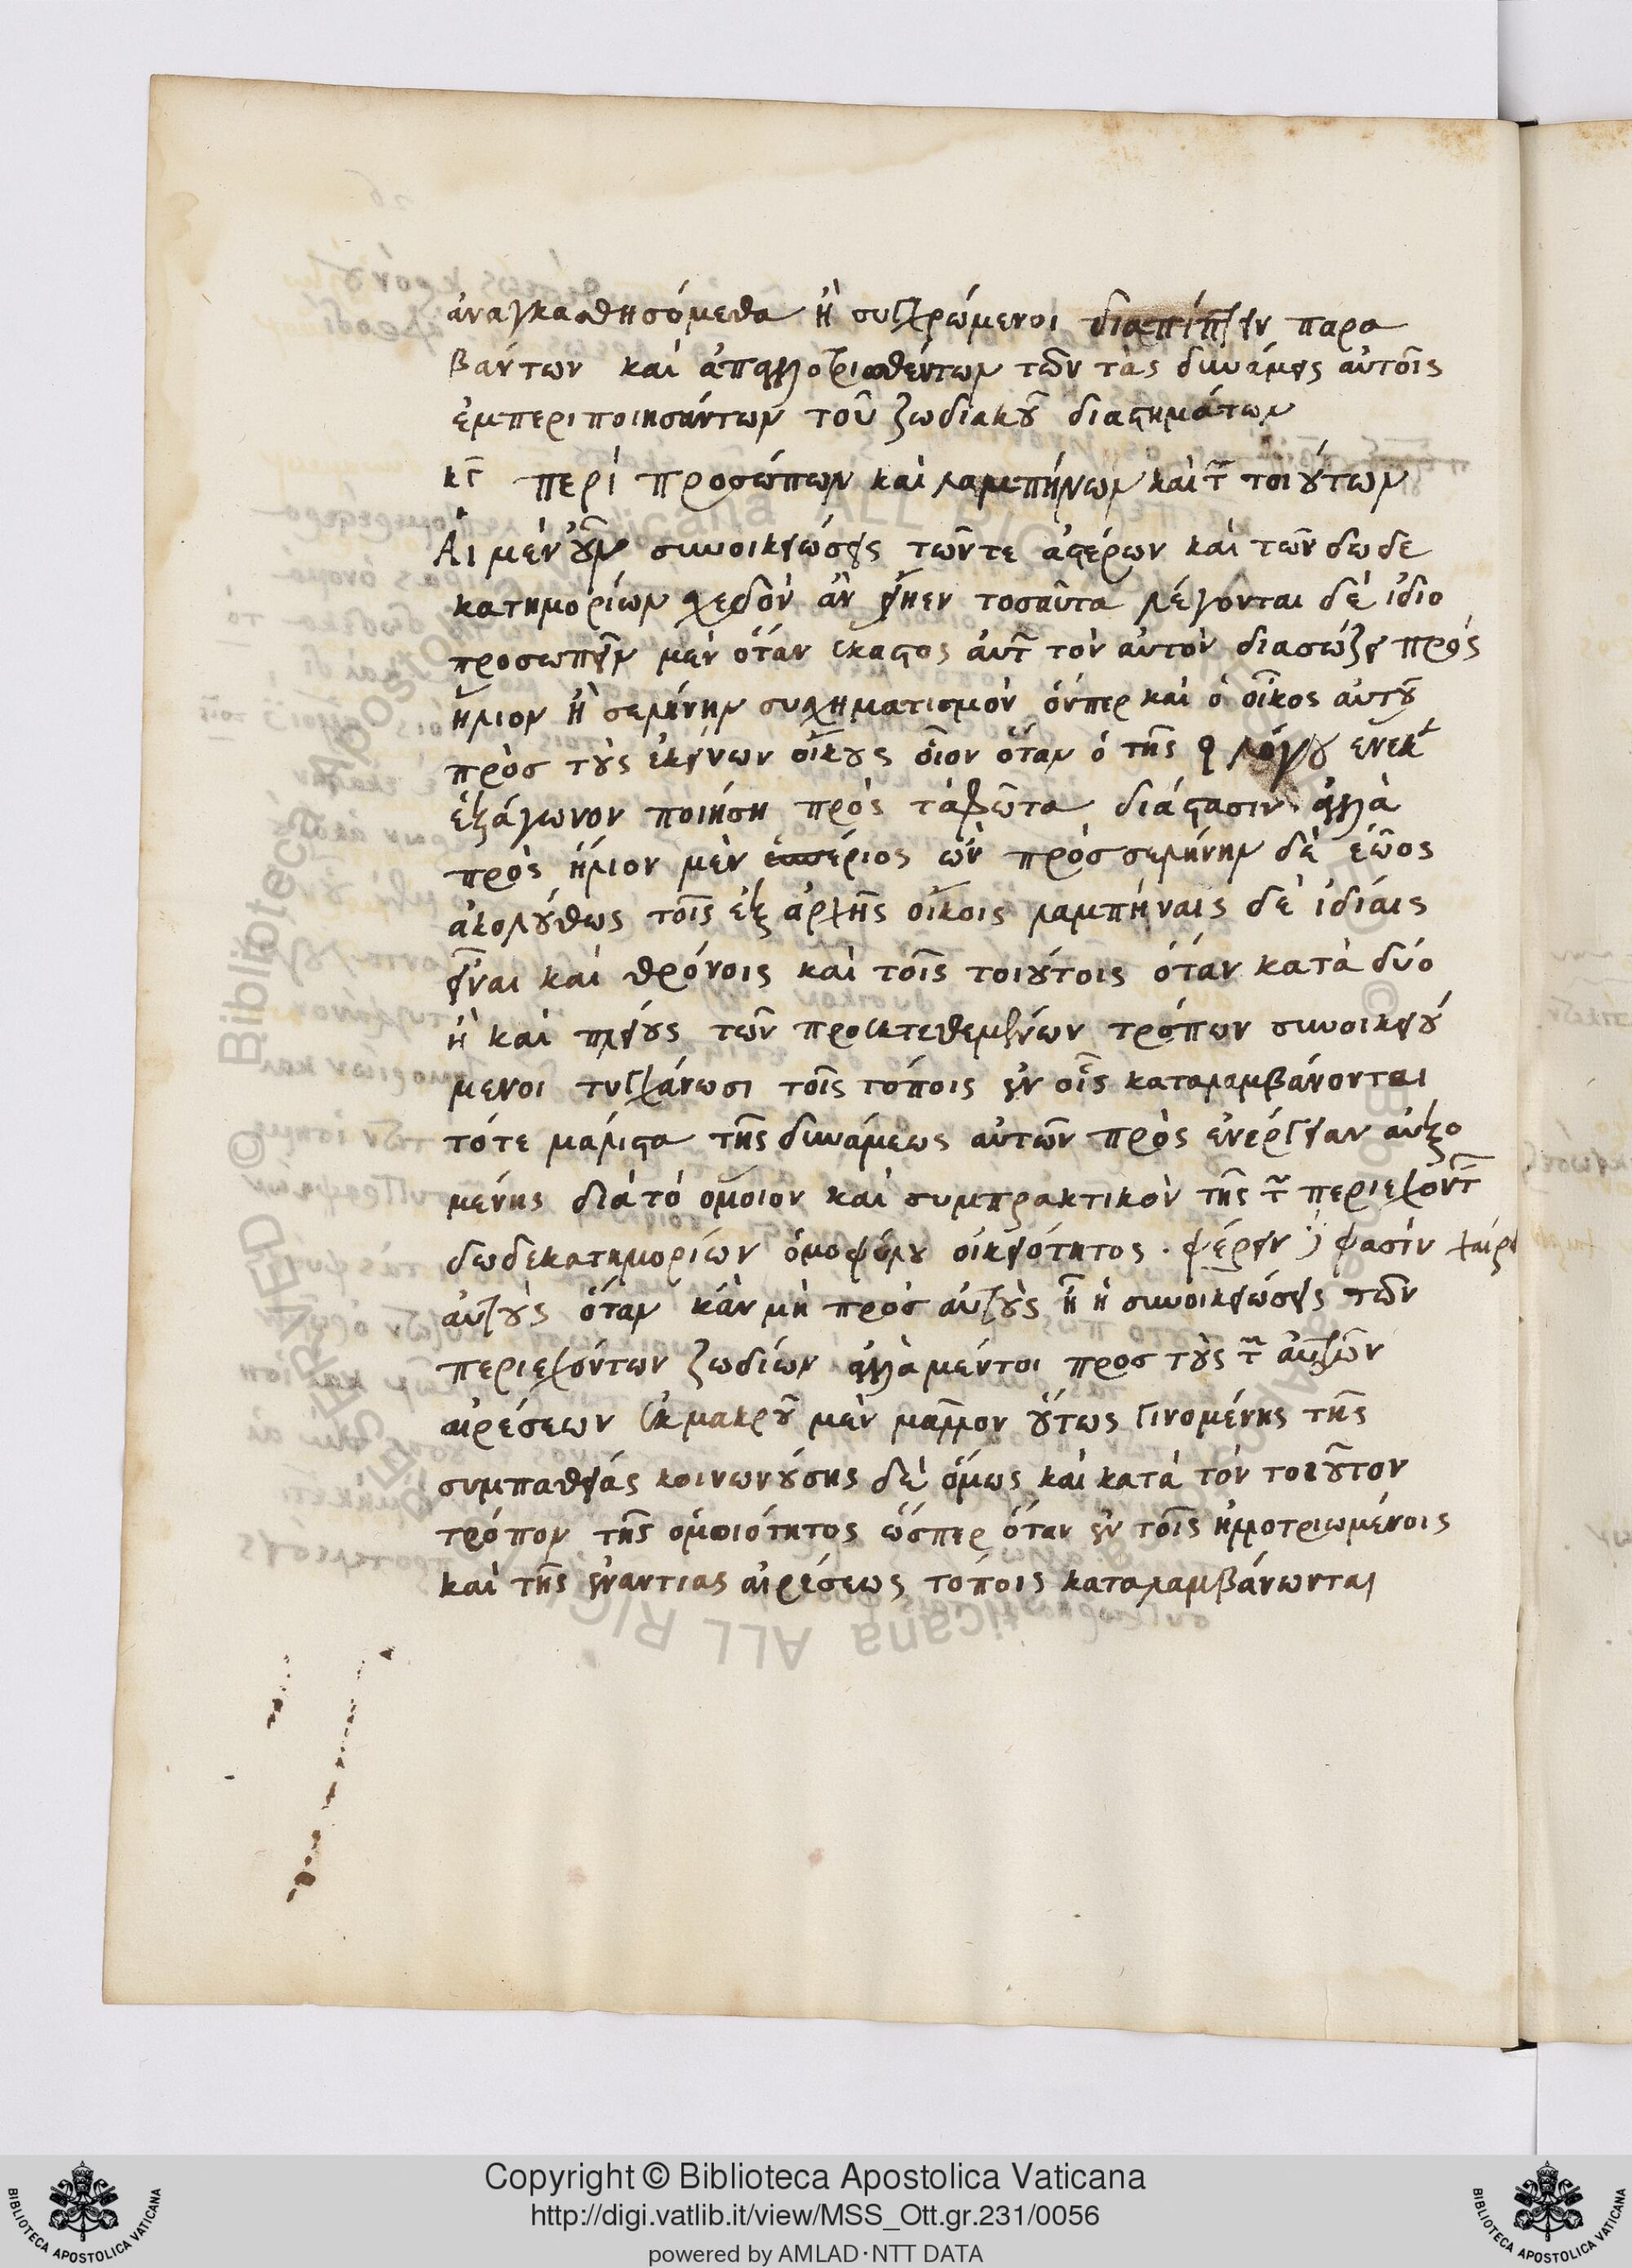 ἀναγκασθησόμεθα ἢ συγχρώμενοι διαπίπτειν παρα
βάντων καὶ ἀπαλλοτριωθέντων τῶν τὰς δυνάμεις αὐτοῖς
ἐμπεριποιησάντων τοῦ ζωδιακοῦ διαστημάτων
κγ περὶ προσώπων καὶ λαμπήνων καὶ τῶν τοιούτων
Αἱ μὲν οὖν συνοικειώσεις τῶν τε ἀστέρων καὶ τῶν δωδε
κατημορίων σχεδὸν ἂν εἴησαν τοσαῦτα λέγονται δὲ ἰδιο
προσωπεῖν μὲν ὅταν ἕκαστος αὐτῶν τὸν αὐτὸν διασώζει πρὸς
ἥλιον ἢ σελήνην συσχηματισμὸν ὅνπερ καὶ ὁ οἶκος αὐτοῦ
πρὸς τοὺς ἐκείνων οἴκους οἷον ὅταν ὁ τῆς ♀ λόγου ἕνεκεν
ἑξάγωνον ποιήσῃ πρὸς τὰ φῶτα διάστασιν ἀλλὰ
πρὸς ἥλιον μὲν ἑσπέριος ὢν πρὸς σελήνην δὲ ἑῷος
ἀκολούθως τοῖς ἐξ ἀρχῆς οἴκοις λαμπήναις δὲ ἰδίαις
εἶναι καὶ θρόνοις καὶ τοῖς τοιούτοις ὅταν κατὰ δύο
ἢ καὶ πλείους τῶν προεκτεθειμένων τρόπων συνοικειού
μενοι τυγχάνωσι τοῖς τόποις ἐν οἷς καταλαμβάνονται
τότε μάλιστα τῆς δυνάμεως αὐτῶν πρὸς ἐνέργειαν αὐξο
μένης διὰ τὸ ὅμοιον καὶ συμπρακτικὸν τῆς τῶν περιεχόντων
δωδεκατημορίων ὁμοφύλου οἰκειότητος. φασὶν χαίρειν
αὐτοὺς ὅταν κἂν μὴ πρὸς αὐτοὺς ᾖ ἡ συνοικείωσις τῶν
περιεχόντων ζωδίων ἀλλὰ μέντοι πρὸς τοὺς τῶν αὐτῶν
αἱρέσεων ἐκ μακροῦ μὲν μᾶλλον οὕτως γινομένης τῆς
συμπαθείας κοινωνούσης δὲ ὅμως καὶ κατὰ τὸν τοιοῦτον
τρόπον τῆς ὁμοιότητος ὥσπερ ὅταν ἐν τοῖς ἠλλοτριωμένοις
καὶ τῆς ἐναντίας αἱρέσεως τόποις καταλαμβάνωνται
Copyright © Biblioteca Apostolica Vaticana
http://digi.vatlib.it/view/MSS_Ott.gr.231/0056
powered by AMLAD·NTT DATA